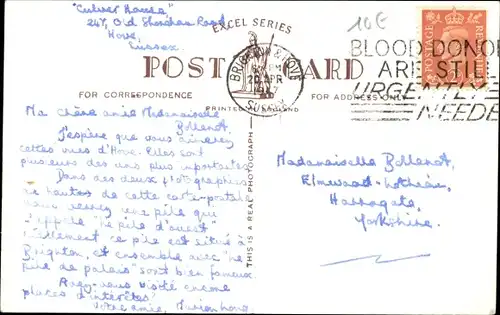 "Culver House"
247, Old Shoreham Road
Hove,
Sussex.
EXCEL SERIES
10€
POST CARD
FOR CORRESPONDENCE
FOR ADDRESS ONLY
PRINTED IN ENGLAND
BRIGHTON & HOVE
20 APR
SUSSEX
BLOOD DONOR
ARE STIL
URGENTLY
NEEDE
POSTAGE
REVENUE
THIS IS A REAL PHOTOGRAPH
Ma Chère amie Mademoiselle
J'espère que vous aimerez
cettes vues d'Hove. Elles sont
plusieurs des uns plus importants.
Dans des deux photographies
de hautes de cette carte-postale
vous verrez une pile qui
s'appelle "le pile d'ouest"
ce pile est situé à
Brighton, et ensemble avec "le
pile de palais" sont bien fameux.
Avez-vous visité encore
places d'intérêtes?
Votre amie,
Mademoiselle
Harrogate,
Yorkshire.